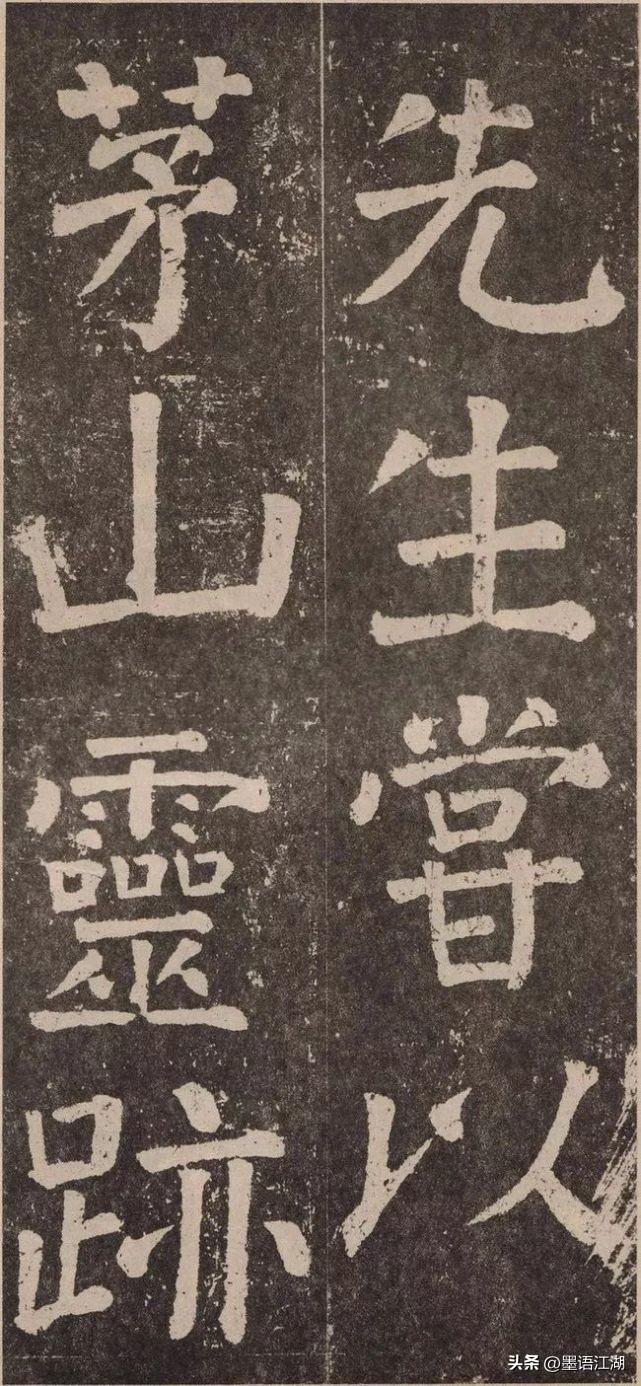 先生甞以
茅山靈跡
头条 @墨语江湖